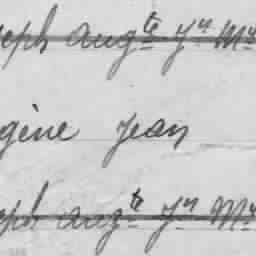 seph Aug^te J^n M^
gène Jean
seph Aug^te J^n M^